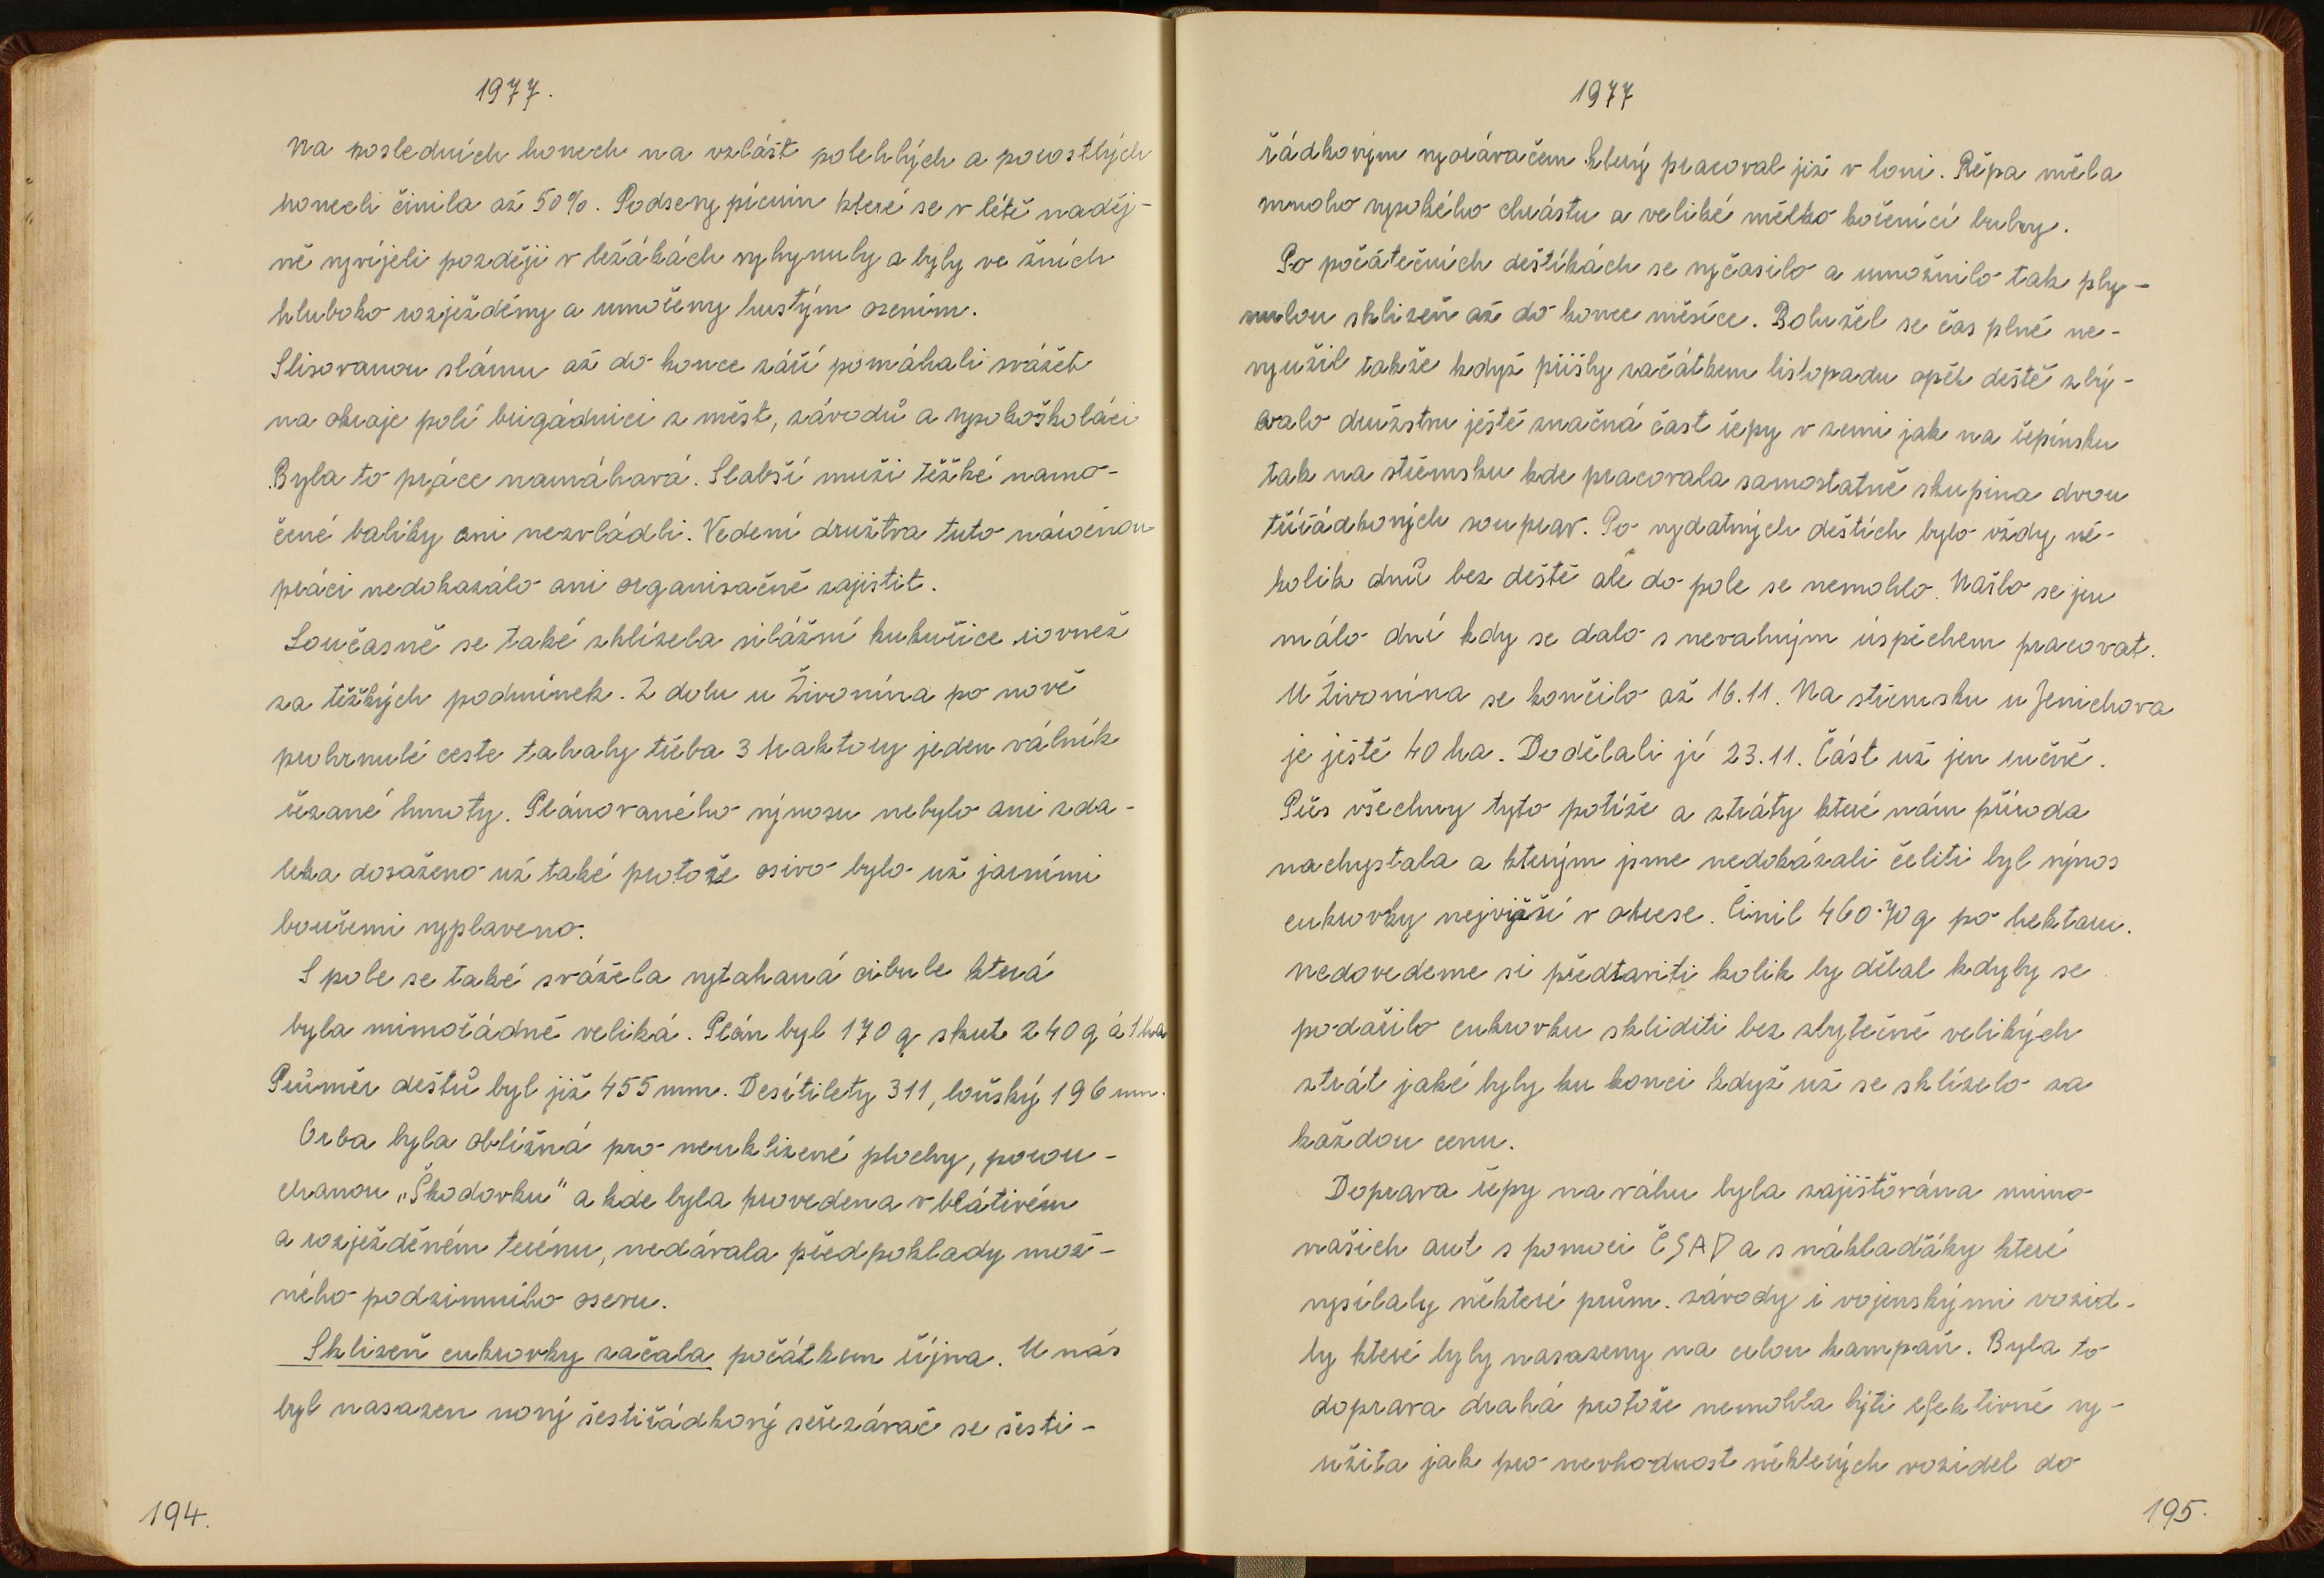 1977.
Na posledních honech na vzlášt polehlých a porostlých
honech činila až 50%. Podsevy pícnin které se v létě naděj-
ně vyvíjeli později v ležákách vyhynuly a byly ve žních
hluboko rozježděny a umořeny hustým osením.
Slisovanou slámu až do konce září pomáhali svážet
na okraje polí brigádníci z měst, závodů a vysokoškoláci
Byla to práce namáhavá. Slabší muži těžké namo-
čené balíky ani nezvládli. Vedení družtva tuto náročnou
práci nedokazálo ani organisačně zajistit.
Současně se také sklízela silážní kukuřice rovněž
za těžkých podmínek. Z dolu u Živonína po nově
prohrnulé ceste tahaly třeba 3 traktory jeden válník
řezané hmoty. Plánovaného výnosu nebylo ani zda-
leka dosaženo už také protože osivo bylo už jarními
bouřemi vyplaveno.
S pole se také svážela vytahaná cibule která
byla mimořádně veliká. Plán byl 170 q skut 240 q à 1 ha
Průměr deštů byl již 455 mm. Desítiletý 311, loňský 196 mm.
Orba byla obtížná pro neuklizené plochy, porou-
chanou „Škodovku" a kde byla provedena v blátivém
a rozježděném terénu, nedávala předpoklady mož-
ného podzimního osevu.
Sklizeň cukrovky začala počátkem října. U nás
byl nasazen nový šestiřádkový seřezávač se šesti-
194.
1977
řádkovým vyorávačem který pracoval již v loni. Řěpa měla
mnoho vysokého chrástu a veliké mělko kořenící bulvy.
Po počátečních deštíkách se vyčasilo a umožnilo tak ply-
nulou sklizeň až do konce měsíce. Bohužel se čas plně ne-
využil takže když přišly začátkem listopadu opět deště zbý-
valo družstvu ještě značná část řepy v zemi jak na řepínsku
tak na střemsku kde pracovala samostatně skupina dvou
třířádkových souprav. Po vydatných deštích bylo vždy ně-
kolik dnů bez deště ale do pole se nemohlo. Našlo se jen
málo dní kdy se dalo s nevalným úspěchem pracovat.
U Živonína se končilo až 16.11. Na střemsku u Jenichova
je ještě 40 ha. Dodělali jí 23.11. Část už jen ručně.
Přes všechny tyto potíže a ztráty které nám příroda
nachystala a kterým jsme nedokázali čeliti byl výnos
cukrovky nejvyšší v okrese. Činil 460·70 q po hektaru.
nedovedeme si předtaviti kolik by dělal kdyby se
podařilo cukrovku skliditi bez zbytečně velikých
ztrát jaké byly ku konci když už se sklízelo za
každou cenu.
Doprava řepy na váhu byla zajištována mimo
našich aut s pomoci ČSAD a s náklaďáky které
vysílaly některé prům. závody i vojenskými vozid-
ly které byly nasazeny na celou kampaň. Byla to
doprava drahá protože nemohla býti efektivně vy-
užita jak pro nevhodnost některých vozidel do
195.